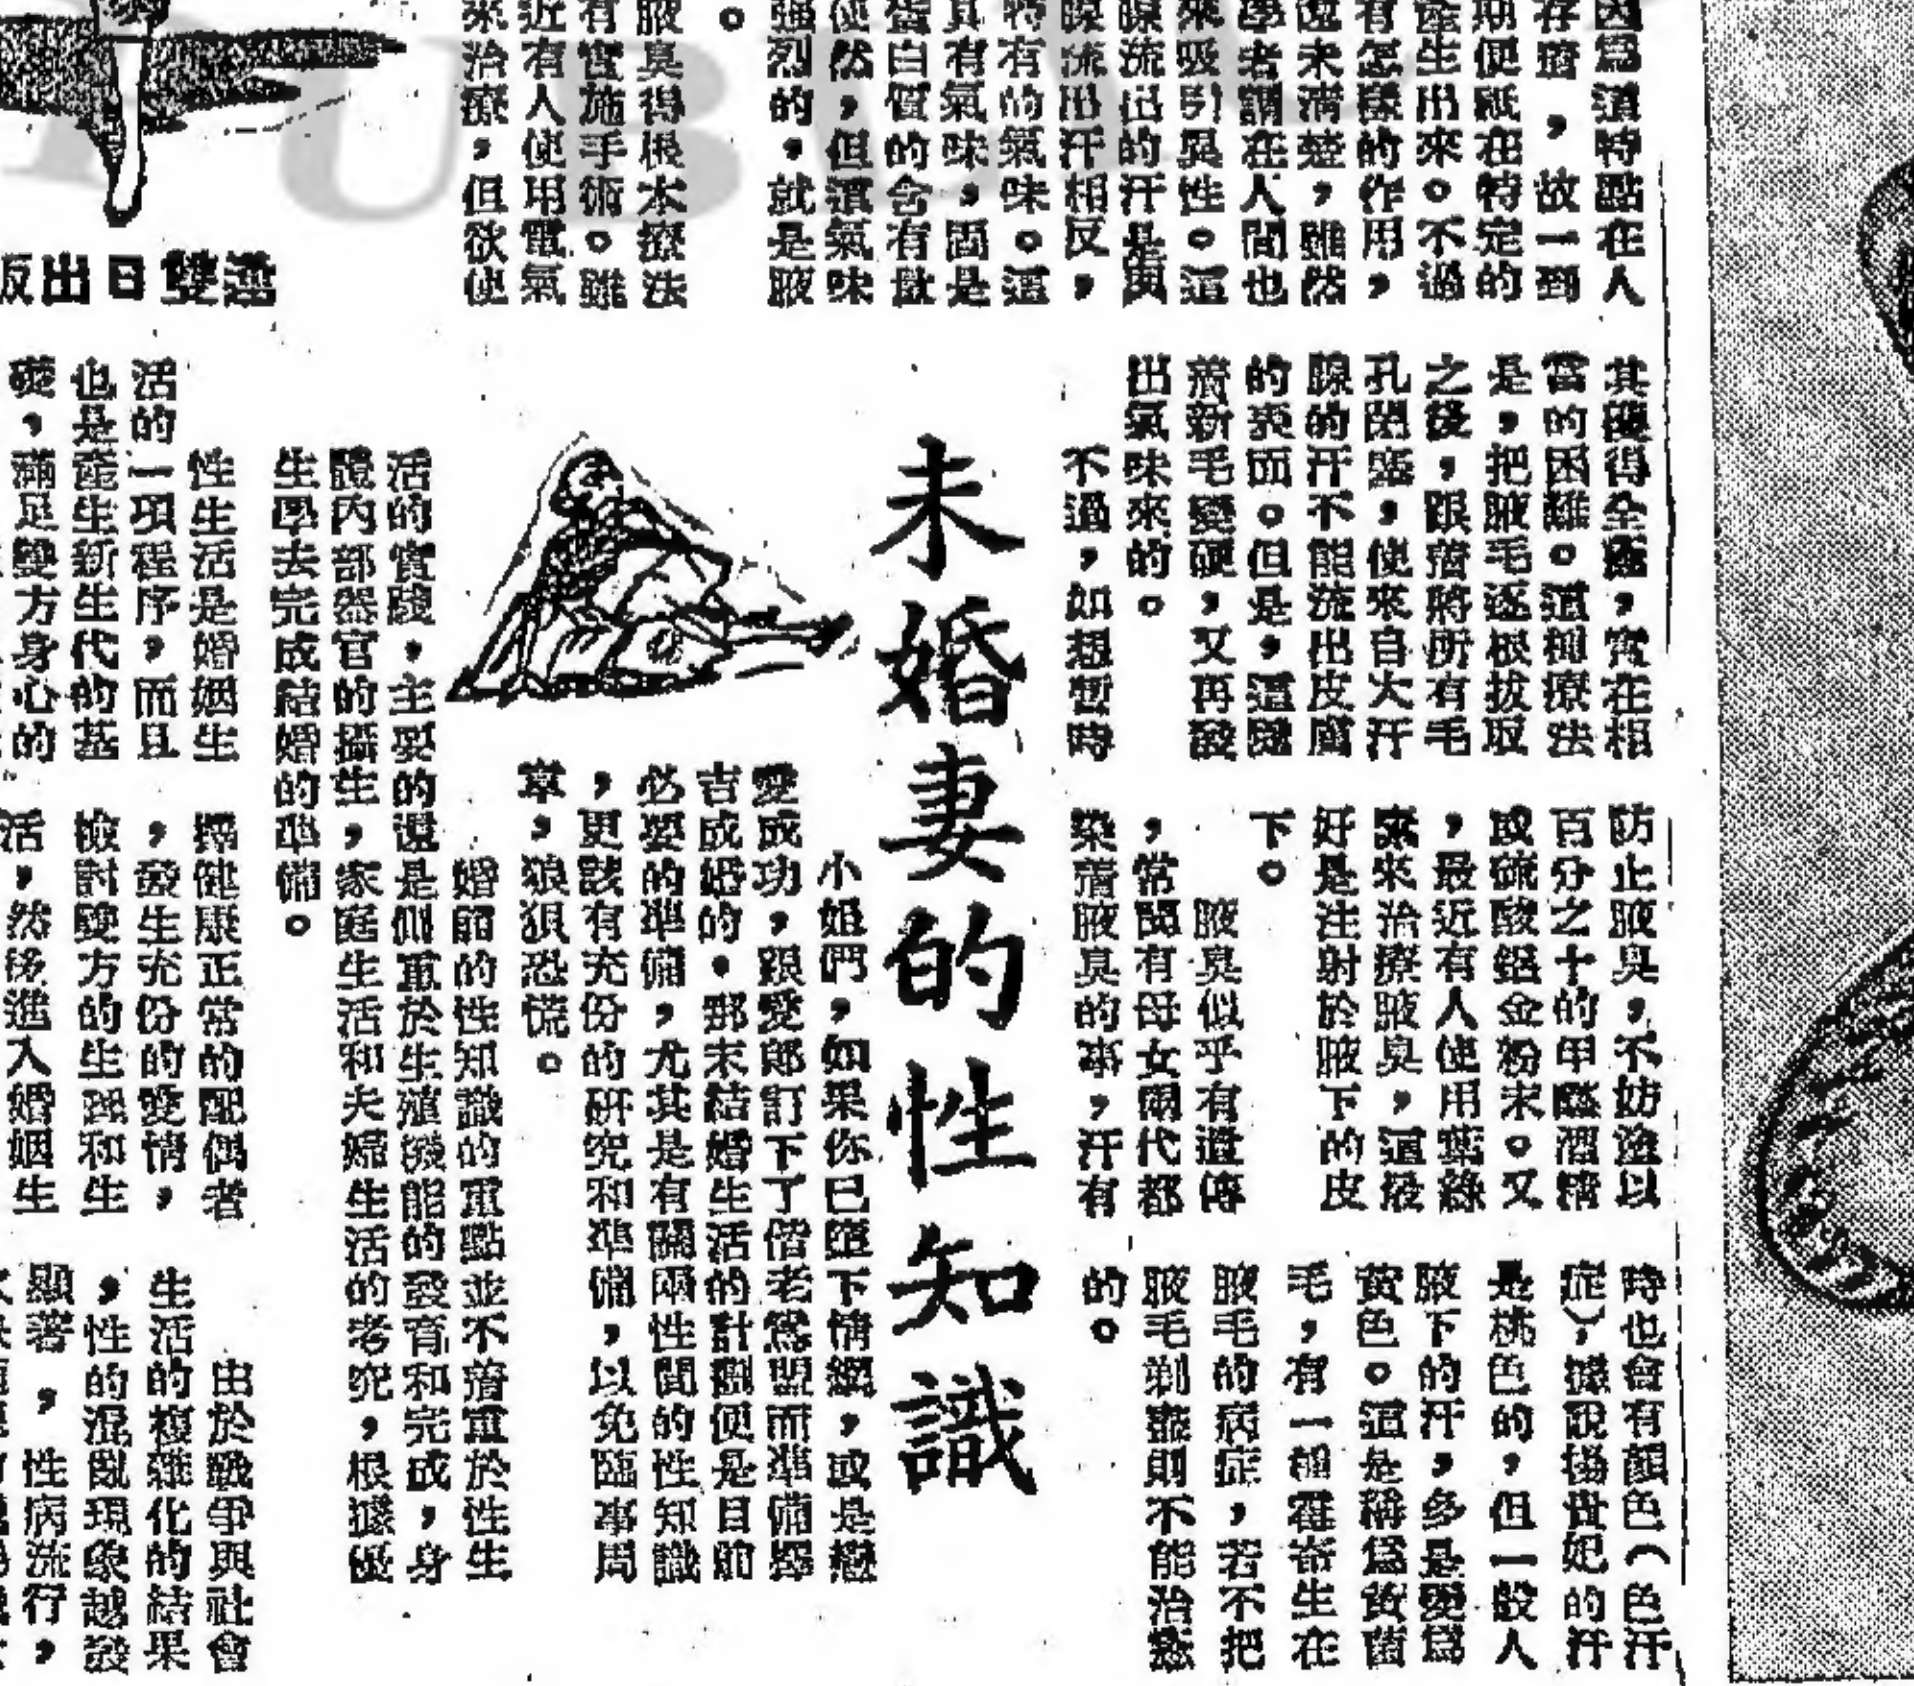 因爲這特點在人
存着，故一到
期便祇在特定的
產生出來。不過
有怎樣的作用，
還未清楚，雖然
學者謂在人間也
來吸引異性。這
腺流出的汗是與
腺流出汗相反，
特有的氣味。這
具有氣味，固是
蛋白質的含有量
使然，但這氣味
强烈的，就是腋
。
腋臭得根本療法
有實施手術。雖
近有人使用電氣
來治療，但欲使
其獲得全癒，實在相
當的困難。這種療法
是，把腋毛逐根拔取
之後，跟着將所有毛
孔閉塞，使來自大汗
腺的汗不能流出皮膚
的表面。但是，這樣
着新毛變硬，又再發
出氣味來的。
不過，如想暫時
防止腋臭，不妨塗以
百分之十的甲醛酒精
或硫酸鋁金粉末。又
，最近有人使用葉綠
素來治療腋臭，這最
好是注射於腋下的皮
下。
腋臭似乎有遺傳
，常聞有母女兩代都
染着腋臭的事，汗有
時也會有顏色（色汗
症），據說楊貴妃的汗
是桃色的，但一般人
腋下的汗，多是變爲
黄色。這是稱爲黄菌
毛，有一種霉寄生在
腋毛的病症，若不把
腋毛剃盡則不能治愈
的。
未婚妻的性知識
小姐們，如果你已墮下情網，或是戀
愛成功，跟愛郎訂下了偕老鴛盟而準備擇
吉成婚的。那末結婚生活的計劃便是目前
必要的準備，尤其是有關兩性間的性知識
，更該有充份的研究和準備，以免臨事周
章，狼狽恐慌。
婚前的性知識的重點並不着重於性生
活的實踐，主要的還是側重於生殖機能的發育和完成，身
體內部器官的攝生，家庭生活和夫婦生活的考究，根據優
生學去完成結婚的準備。
性生活是婚姻生
活的一項程序，而且
也是產生新生代的基
礎，滿足雙方身心的
擇健康正常的配偶者
，發生充份的愛情，
檢討雙方的生理和生
活，然後進入婚姻生
由於戰爭與社會
生活的複雜化的結果
，性的混亂現象越發
顯著，性病流行，
逢雙日出版